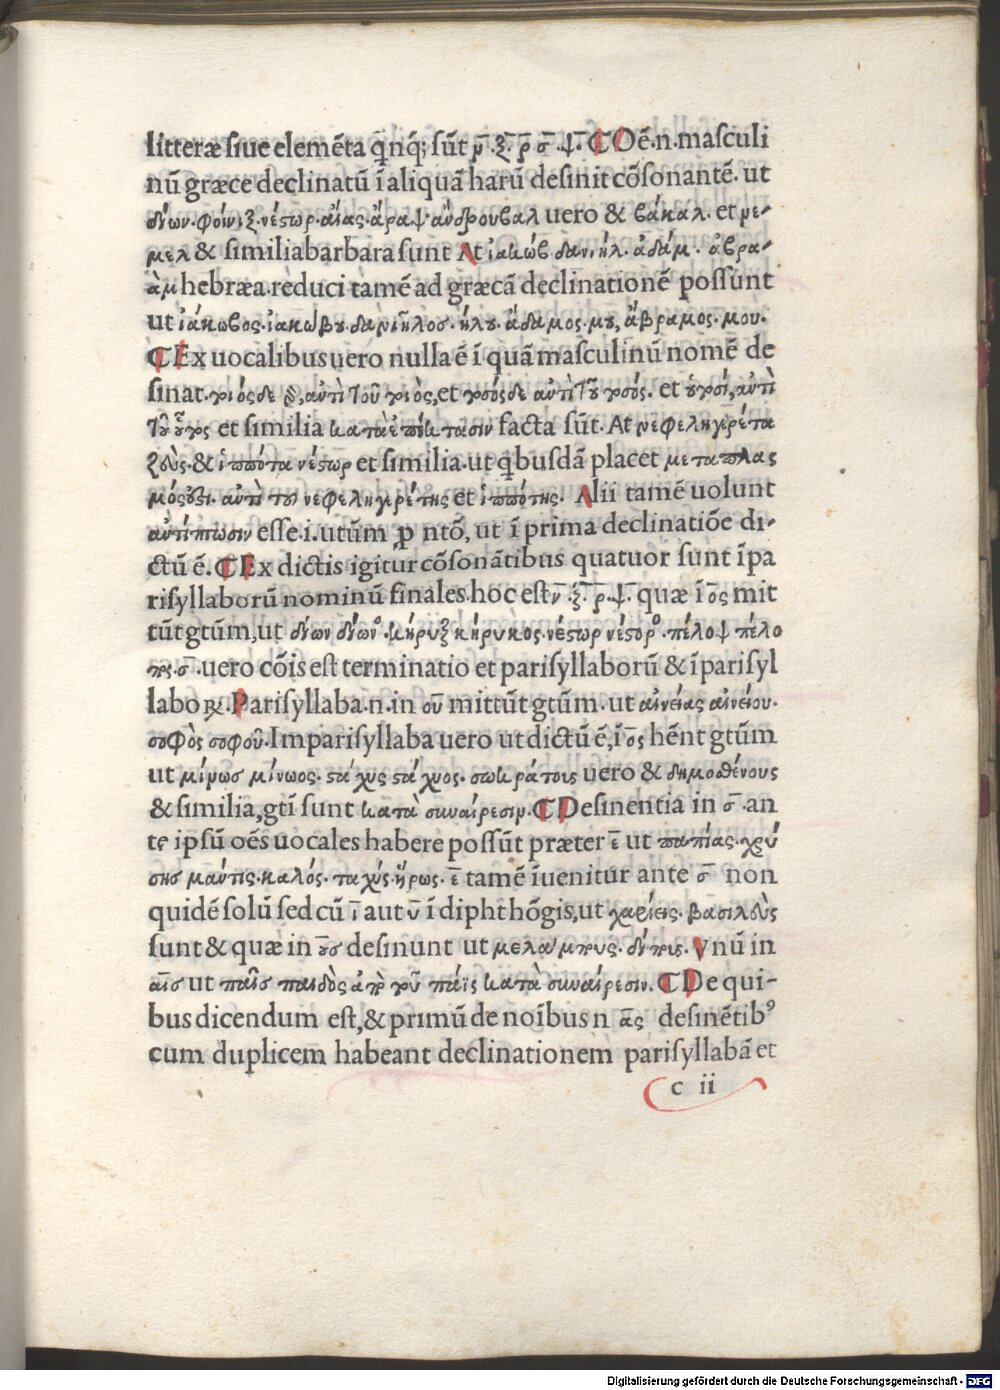 litteræ siue elemēta q̄nq́; sūt ν̄·ξ̄·ρ̄·σ̄·ψ̄· ⸿Oē·n·masculi
nū græce declinatū ī aliquā harū desinit cōsonantē· ut
δίων·φοίνιξ·νέστωρ·αἴας·ἄραψ· ἀνδρουβαλ uero & βάκαλ· et με-
μελ & similia barbara sunt At ἰακώβ· δανιήλ· ἀδάμ· ἀβρα-
ὰμ hebræa·reduci tamē ad græcā declinationē possunt
ut ἰάκωβος·ἰακώβου·δανιῆλοσ·ήλου·ἄδαμος·μου, ἄβραμος·μου·
⸿Ex uocalibus uero nulla ē ī quā masculinū nomē de
sinat· et similia κατὰ ἐπέκτασιν facta sūt· At νεφεληγερέτα
ζεὺς·& ἱππότα νέστωρ et similia·ut q̄busdā placet μεταπλας
μός ἀντὶ τοῦ νεφεληγερέτης et ἱππότης· Alii tamē uolunt
ἀντίπτωσιν esse·i·utūm ꝓ ntō, ut ī prima declinatiōe di-
ctū ē·⸿Ex dictis igitur cōsonātibus quatuor sunt īpa
risyllaborū nominū finales·hoc est ν̄·ξ̄·ρ̄·ψ̄· quæ ī ο̄ς mit
tūt gtūm, ut δίων δίωνος·κήρυξ κήρυκος·νέστωρ νέστορος·πέλοψ πέλο
πος·σ̄·uero cōis est terminatio et parisyllaborū & īparisyl
laboꝝ·Parisyllaba·n·in ου mittūt gtūm·ut αἰνείας αἰνείου·
σοφὸς σοφοῦ·Imparisyllaba uero ut dictū ē, ī ο̄ς hēnt gtūm
ut μίνωσ μίνωος· στάχυς στάχυος· σωκράτους uero & δημοσθένους
& similia, gtī sunt κατὰ συναίρεσιν·⸿Desinentia in σ̄·an
te ipsū oēs uocales habere possūt præter ε̄ ut παπίας·χρύ
σησ μάντις·καλός·ταχύς·ἥρως· ε̄ tamē īuenitur ante σ̄ non
quidē solū sed cū ῑ aut ῡ ī diphthōgis, ut χαρίεις·βασιλεὺς
sunt & quæ in ο̄υσ desinunt ut μελάμπους· Vnū in
αῑσ ut παῖσ παιδὸς ἀπὸ τοῦ πάϊς κατὰ συναίρεσιν·⸿De qui-
bus dicendum est, & primū de noībus n ᾱς desinētibꝰ
cum duplicem habeant declinationem parisyllabā et
c ii
Digitalisierung gefördert durch die Deutsche Forschungsgemeinschaft - DFG